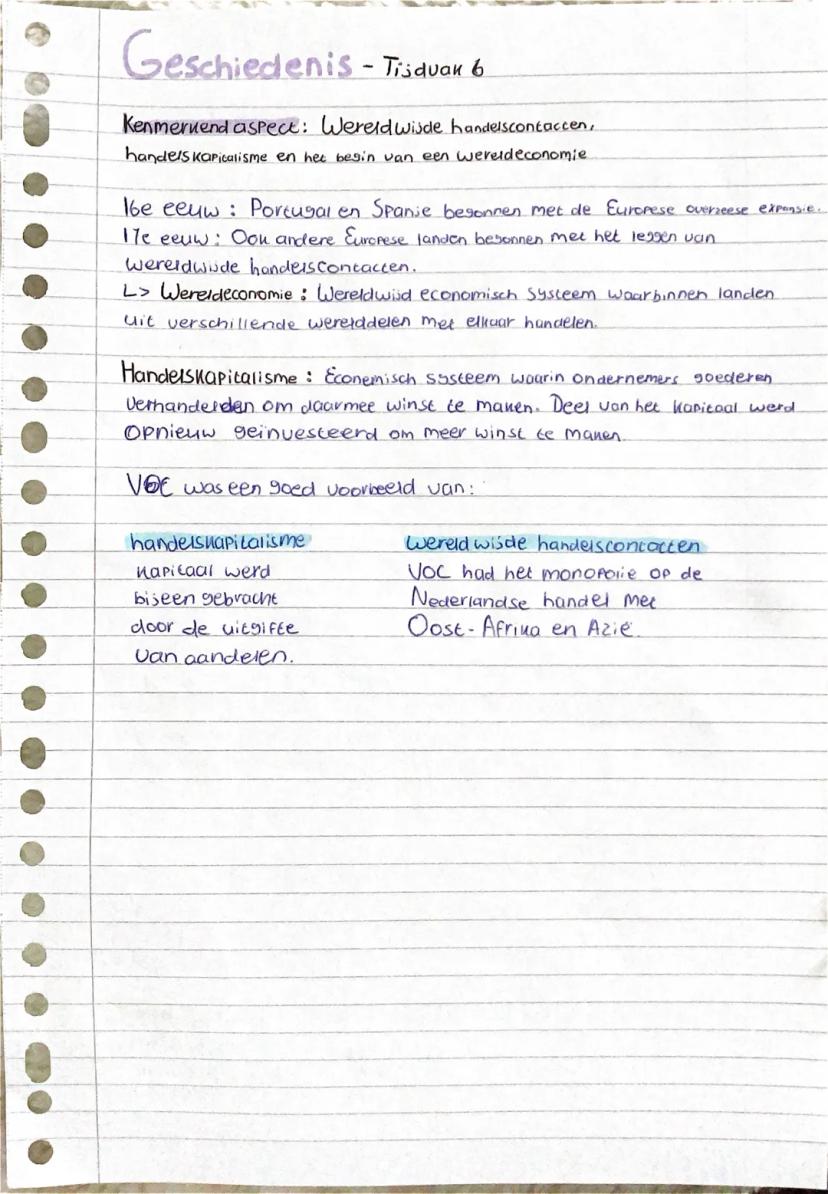 Geschiedenis - Tijdvak 6
Kenmerkend aspect: Wereldwijde handelscontacten,
handelskapitalisme en het begin van een wereldeconomie
16e eeuw: Portugal en Spanje begonnen met de Europese overzeese expansie.
17e eeuw: Ook andere Europese landen begonnen met het leggen van
wereldwijde handelscontacten.
L> Wereldeconomie: Wereldwijd economisch systeem waarbinnen landen
uit verschillende werelddelen met elkaar handelen.
Handelskapitalisme: Economisch systeem waarin ondernemers goederen
verhandelden om daarmee winst te maken. Deel van het kapitaal werd
opnieuw geinvesteerd om meer winst te maken.
VOC was een goed voorbeeld van:
handelskapitalisme wereldwijde handelscontacten
kapitaal werd VOC had het monopolie op de
bijeen gebracht Nederlandse handel met
door de uitgifte Oost-Afrika en Azië.
van aandelen.